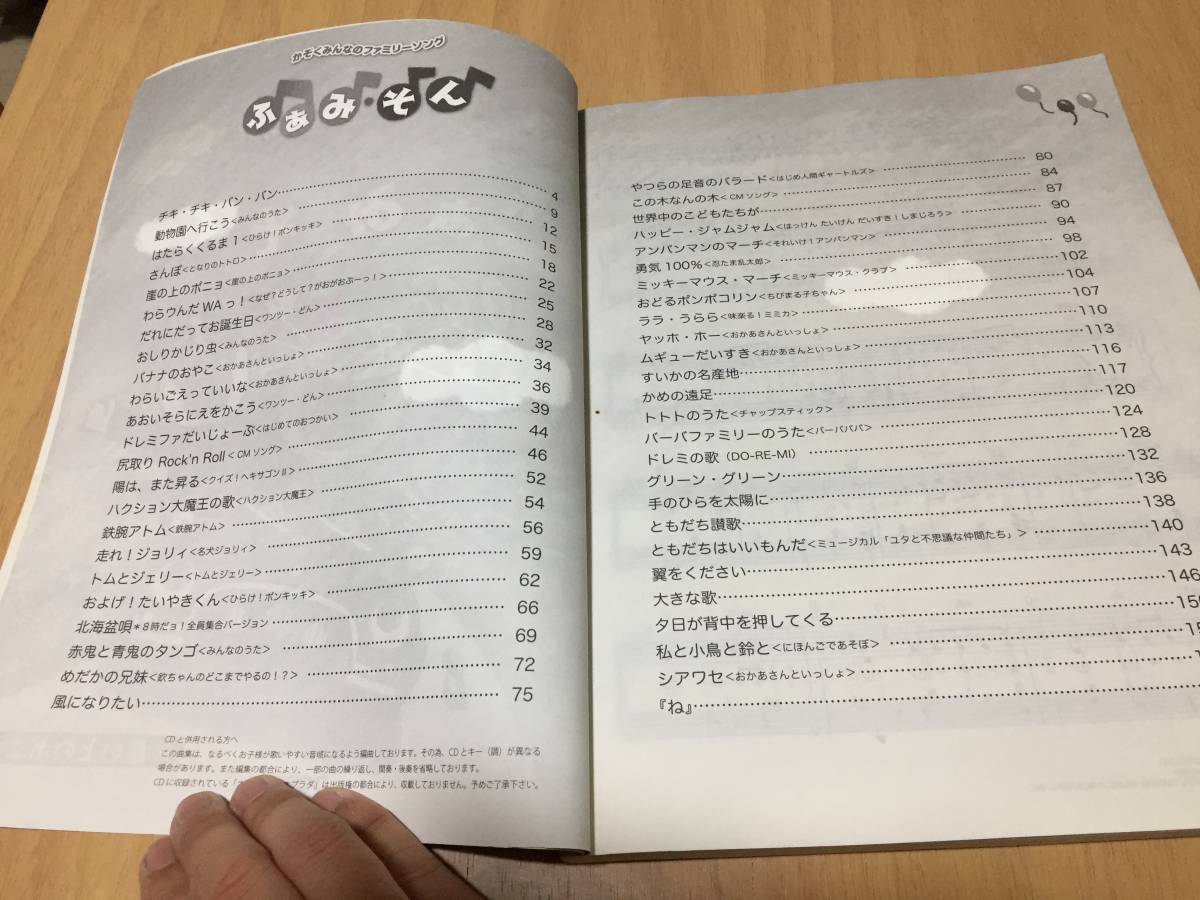 かぞくみんなのファミリーソング
ふぁみ・そん
チキ・チキ・バン・バン……4
動物園へ行こう<みんなのうた>……9
はたらくくるま1<ひらけ!ポンキッキ>……12
さんぽ<となりのトトロ>……15
崖の上のポニョ<崖の上のポニョ>……18
わらウんだWAっ!<なぜ?どうして?がおがおぶーっ!>……22
だれにだってお誕生日<ワンツー・どん>……25
おしりかじり虫<みんなのうた>……28
バナナのおやこ<おかあさんといっしょ>……32
わらいごえっていいな<おかあさんといっしょ>……34
あおいそらにえをかこう<ワンツー・どん>……36
ドレミファだいじょーぶ<はじめてのおつかい>……39
尻取り Rock'n Roll<CMソング>……44
陽は、また昇る<クイズ!ヘキサゴンⅡ>……46
ハクション大魔王の歌<ハクション大魔王>……52
鉄腕アトム<鉄腕アトム>……54
走れ!ジョリィ<名犬ジョリィ>……56
トムとジェリー<トムとジェリー>……59
およげ!たいやきくん<ひらけ!ポンキッキ>……62
北海盆唄*8時だョ!全員集合バージョン……66
赤鬼と青鬼のタンゴ<みんなのうた>……69
めだかの兄妹<欽ちゃんのどこまでやるの!?>……72
風になりたい……75
CDと併用される方へ
この曲集は、なるべくお子様が歌いやすい音域になるよう編曲しております。その為、CDとキー(調)が異なる
場合があります。また編集の都合により、一部の曲の繰り返し、間奏・後奏を省略しております。
CDに収録されている「 プラダ」は出版権の都合により、収載しておりません。予めご了承下さい。
やつらの足音のバラード<はじめ人間ギャートルズ>……80
この木なんの木<CMソング>……84
世界中のこどもたちが……87
ハッピー・ジャムジャム<はっけん たいけん だいすき!しまじろう>……90
アンパンマンのマーチ<それいけ!アンパンマン>……94
勇気100%<忍たま乱太郎>……98
ミッキーマウス・マーチ<ミッキーマウス・クラブ>……102
おどるポンポコリン<ちびまる子ちゃん>……104
ララ・うらら<味楽る!ミミカ>……107
ヤッホ・ホー<おかあさんといっしょ>……110
ムギューだいすき<おかあさんといっしょ>……113
すいかの名産地……116
かめの遠足……117
トトトのうた<チャップスティック>……120
バーバファミリーのうた<バーバパパ>……124
ドレミの歌(DO-RE-MI)……128
グリーン・グリーン……132
手のひらを太陽に……136
ともだち讃歌……138
ともだちはいいもんだ<ミュージカル「ユタと不思議な仲間たち」>……140
翼をください……143
大きな歌……146
夕日が背中を押してくる……150
私と小鳥と鈴と<にほんごであそぼ>……15
シアワセ<おかあさんといっしょ>……1
『ね』……